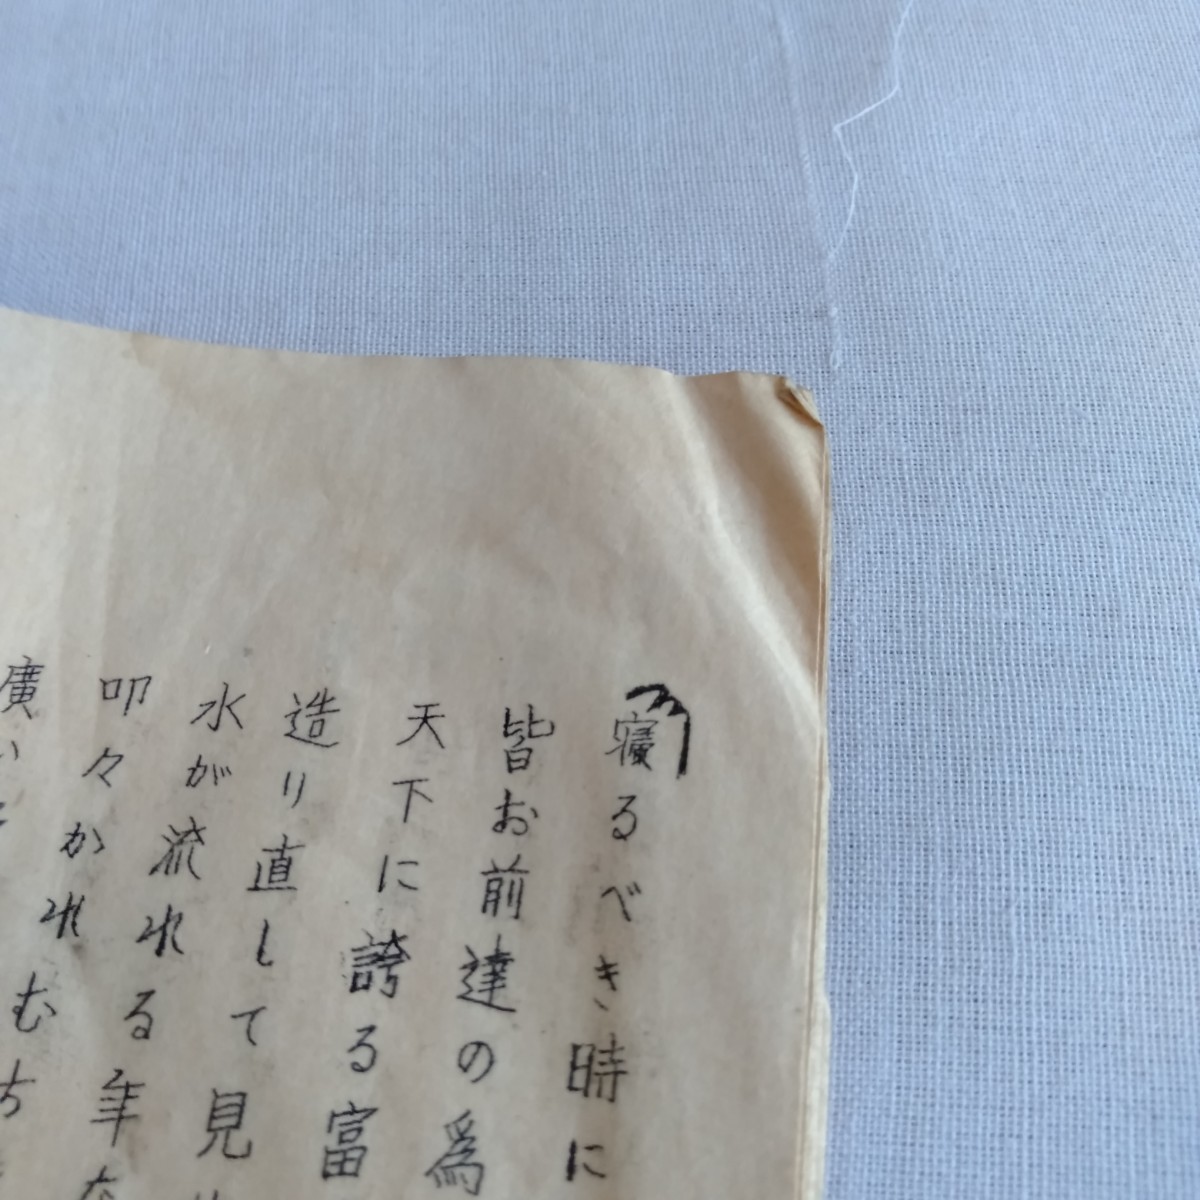 寝るべき時に
皆お前達の爲
天下に誇る富
造り直して見
水が流れる年
叩々かれむち
廣い